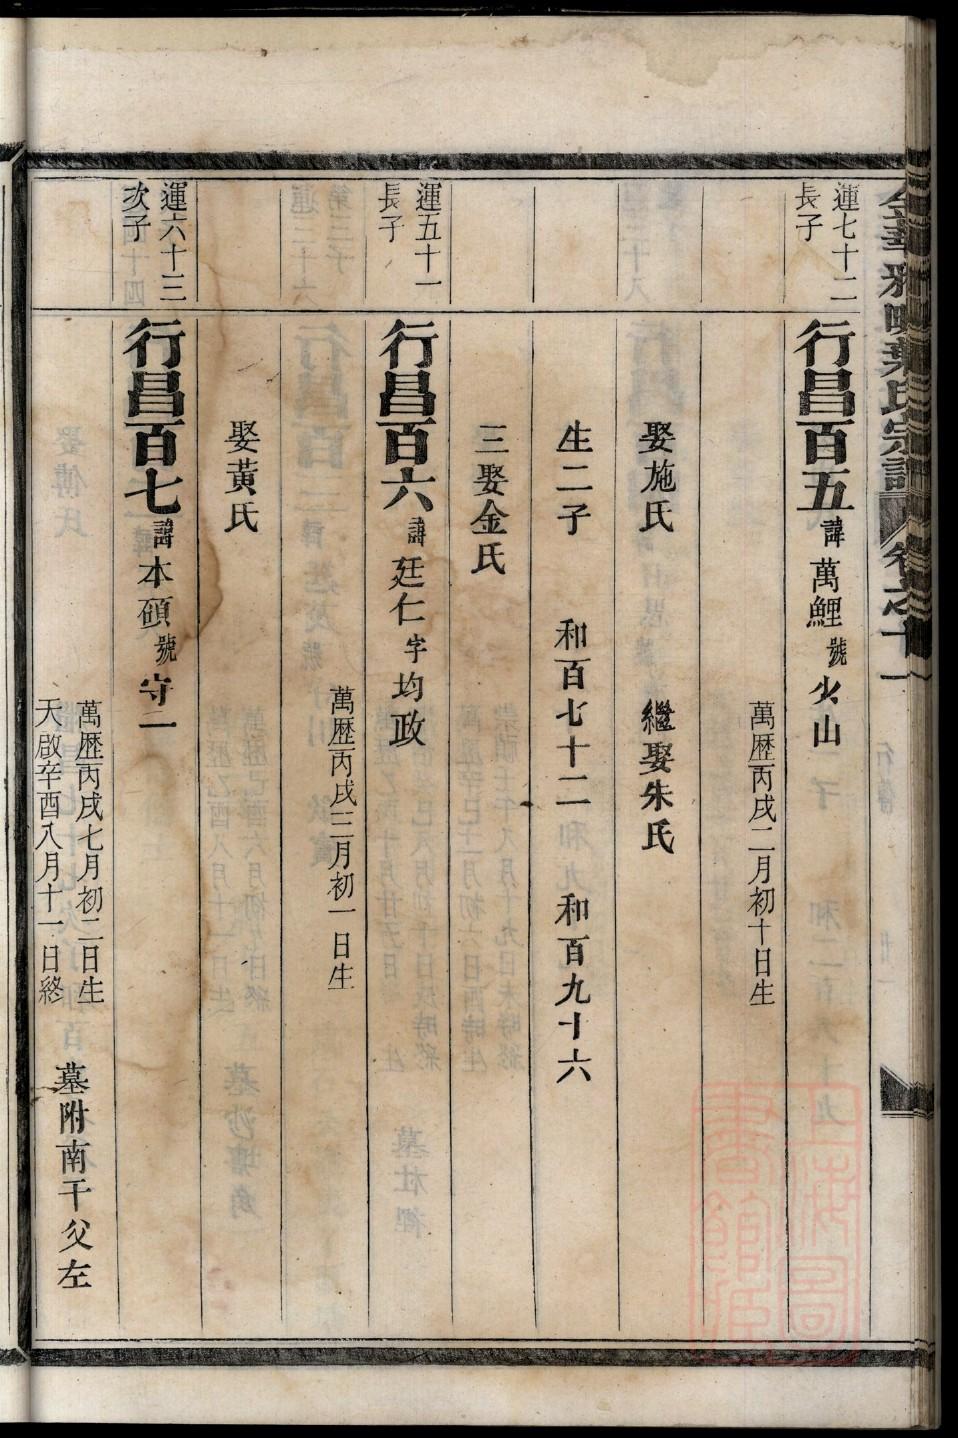 運七十二
長子
行昌百五 諱萬鯉 號少山
萬歷丙戌二月初十日生
娶施氏 繼娶朱氏
生二子 和百七十二 和百九十六
三娶金氏
運五十一
長子
行昌百六 諱廷仁 字均政
萬歷丙戌三月初一日生
娶黃氏
運六十三
次子
行昌百七 諱本碩 號守一
萬歷丙戌七月初二日生
天啟辛酉八月十一日終
墓附南干父左
上海圖書館藏